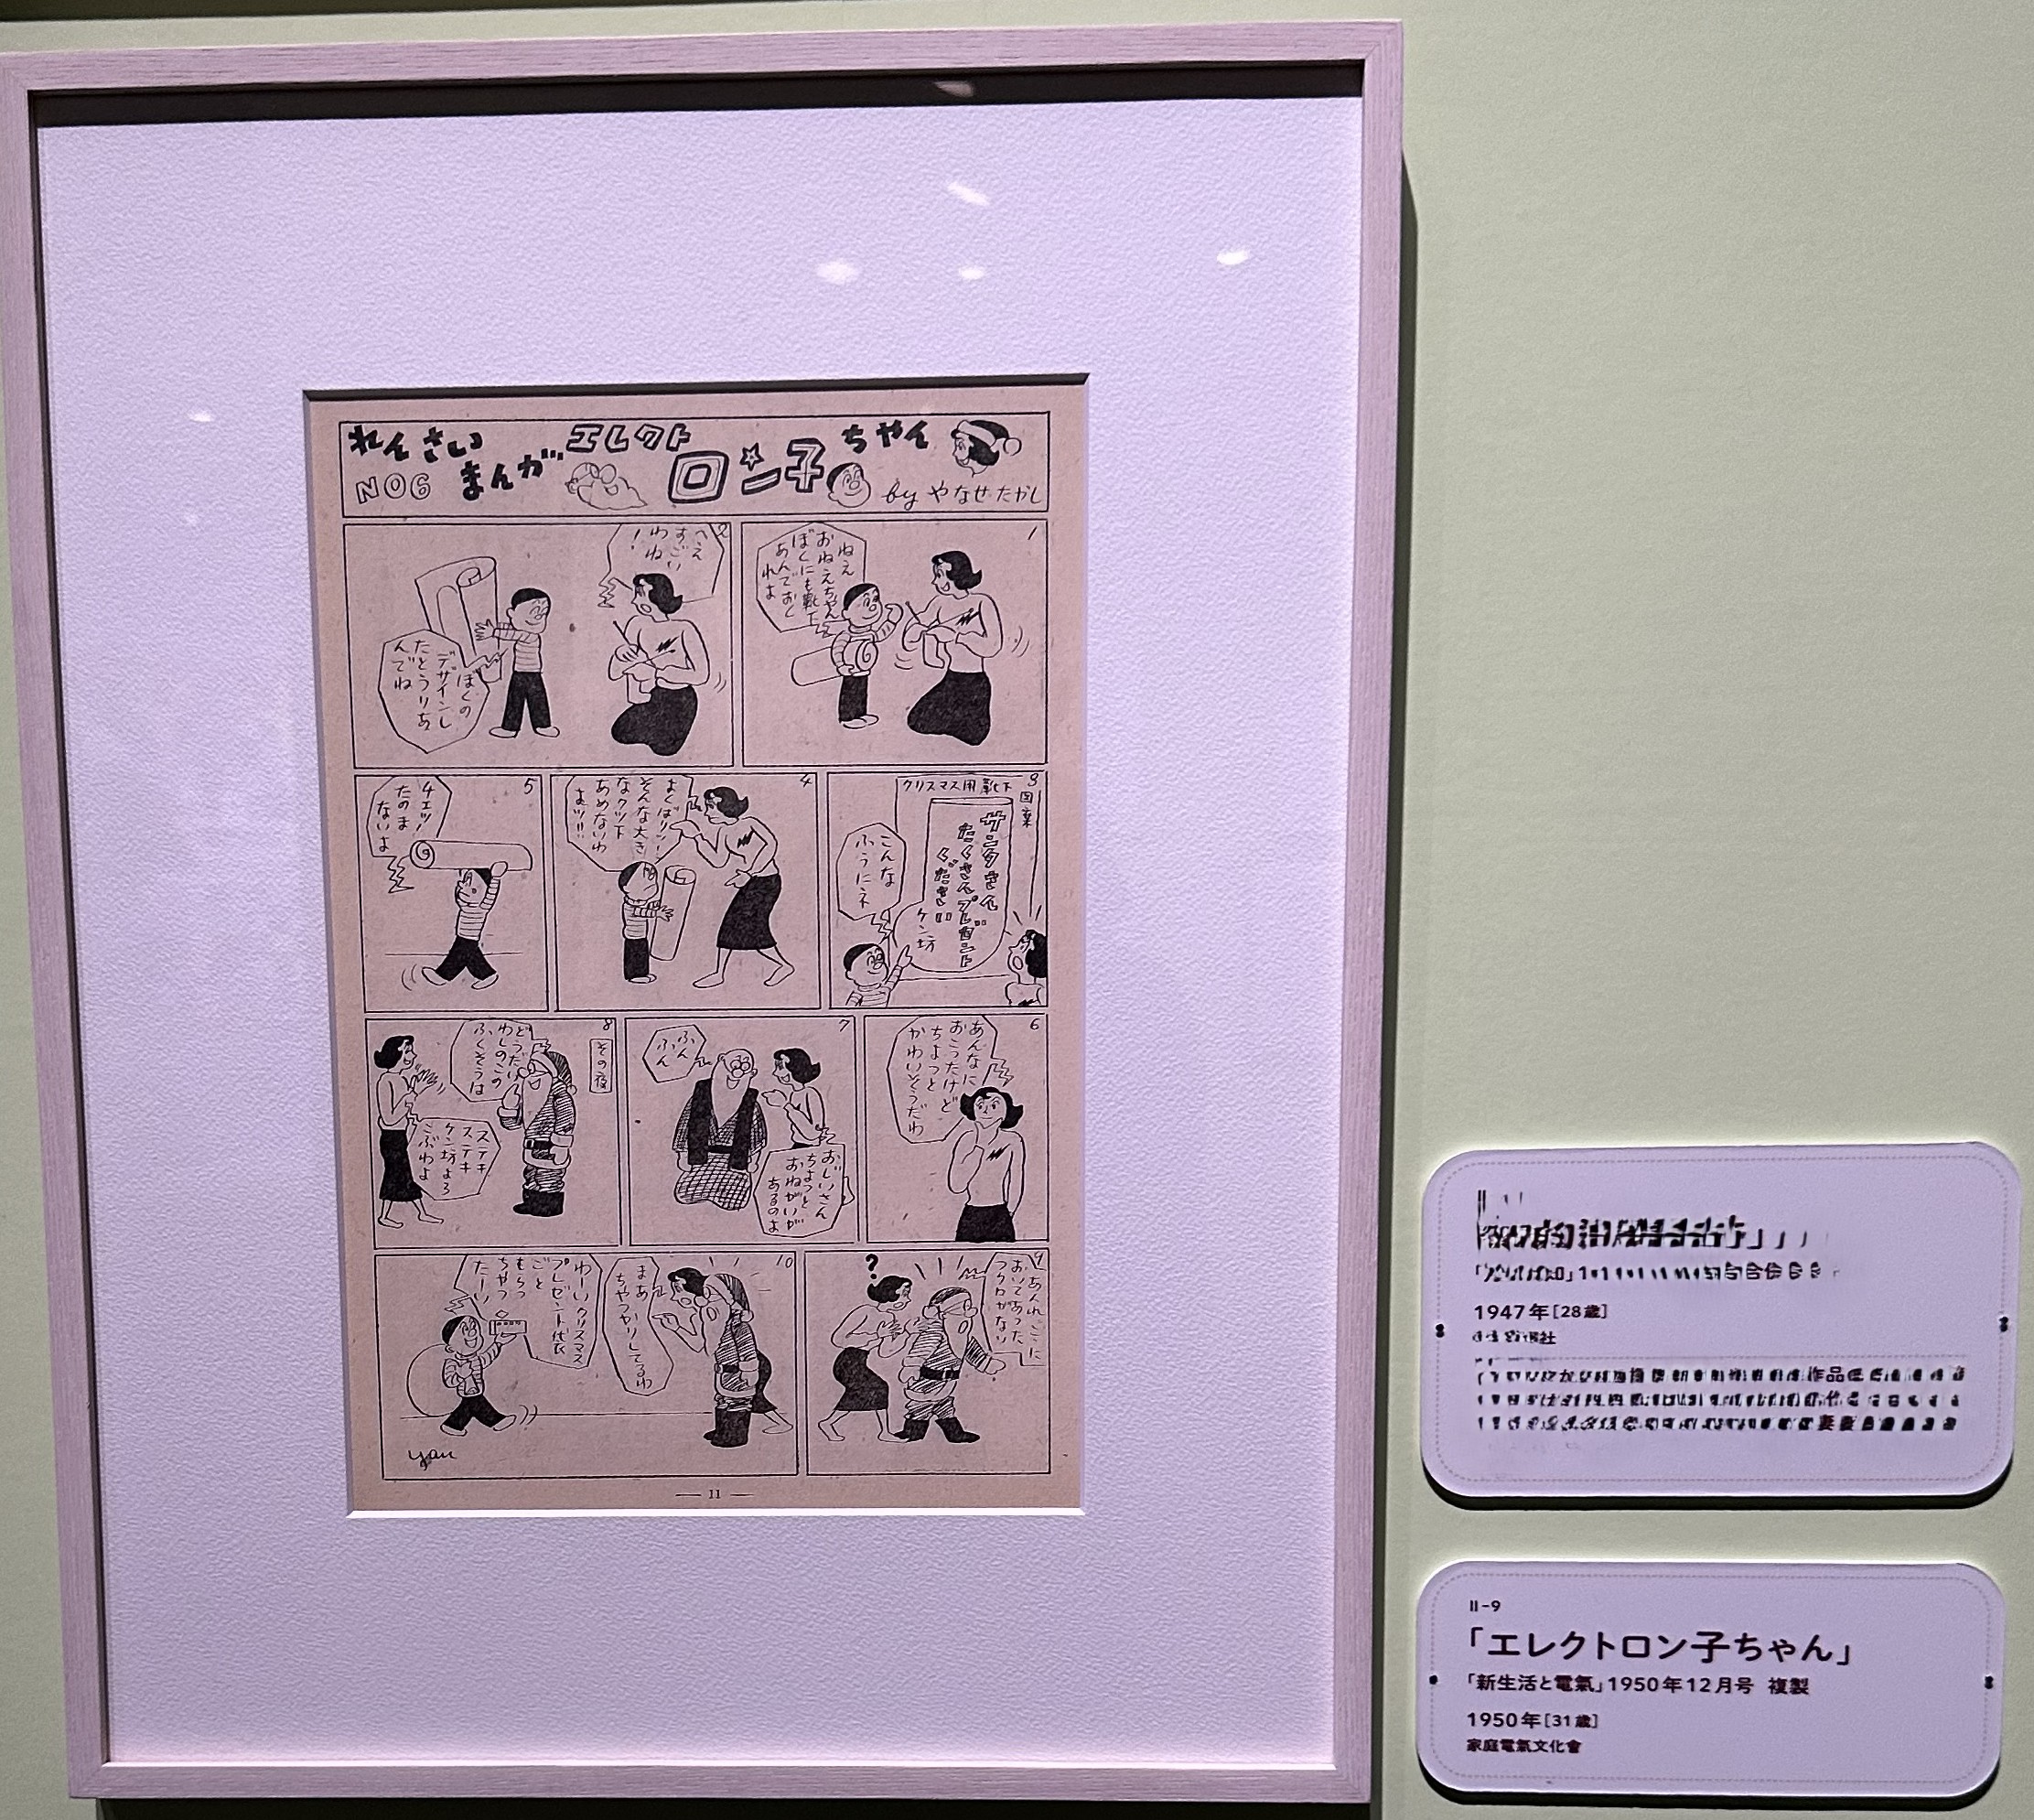 れんさい
まんが
エレクト
ロン子
ちゃん
NO6
by やなせたかし
1
ねえ
おねえちゃん
ぼくにも靴下
あんでおく
れよ
2
へえ
すごい
わね
!
ぼくの
デザインし
たとうりあ
んでね
3
クリスマス用靴下
図案
サンタさん
たくさんプレゼント
ください
ケン坊
こんな
ふうにネ
4
よくばりッ!
そんな大き
なクツ下
あめないわ
よッ!!
5
チェッ!
たのま
ないよ
6
あんなに
おこったけど
ちょっと
かわいそうだわ
7
おじいさん
ちょっと
おねがいが
あるのよ
ふん
ふん
8
その夜
どうだい
わしのこの
ふくそうは
ステキ
ステキ
ケン坊よろ
こぶわよ
9
あれ ここに
おいてあった
フクロがない
?
10
まあ
ちゃっかりしてるわ
わーいクリスマス
プレゼント代表
ごと
もらっ
ちゃっ
たーい
yan
— 11 —
1947年[28歳]
II-9
「エレクトロン子ちゃん」
「新生活と電氣」1950年12月号 複製
1950年[31歳]
家庭電氣文化會